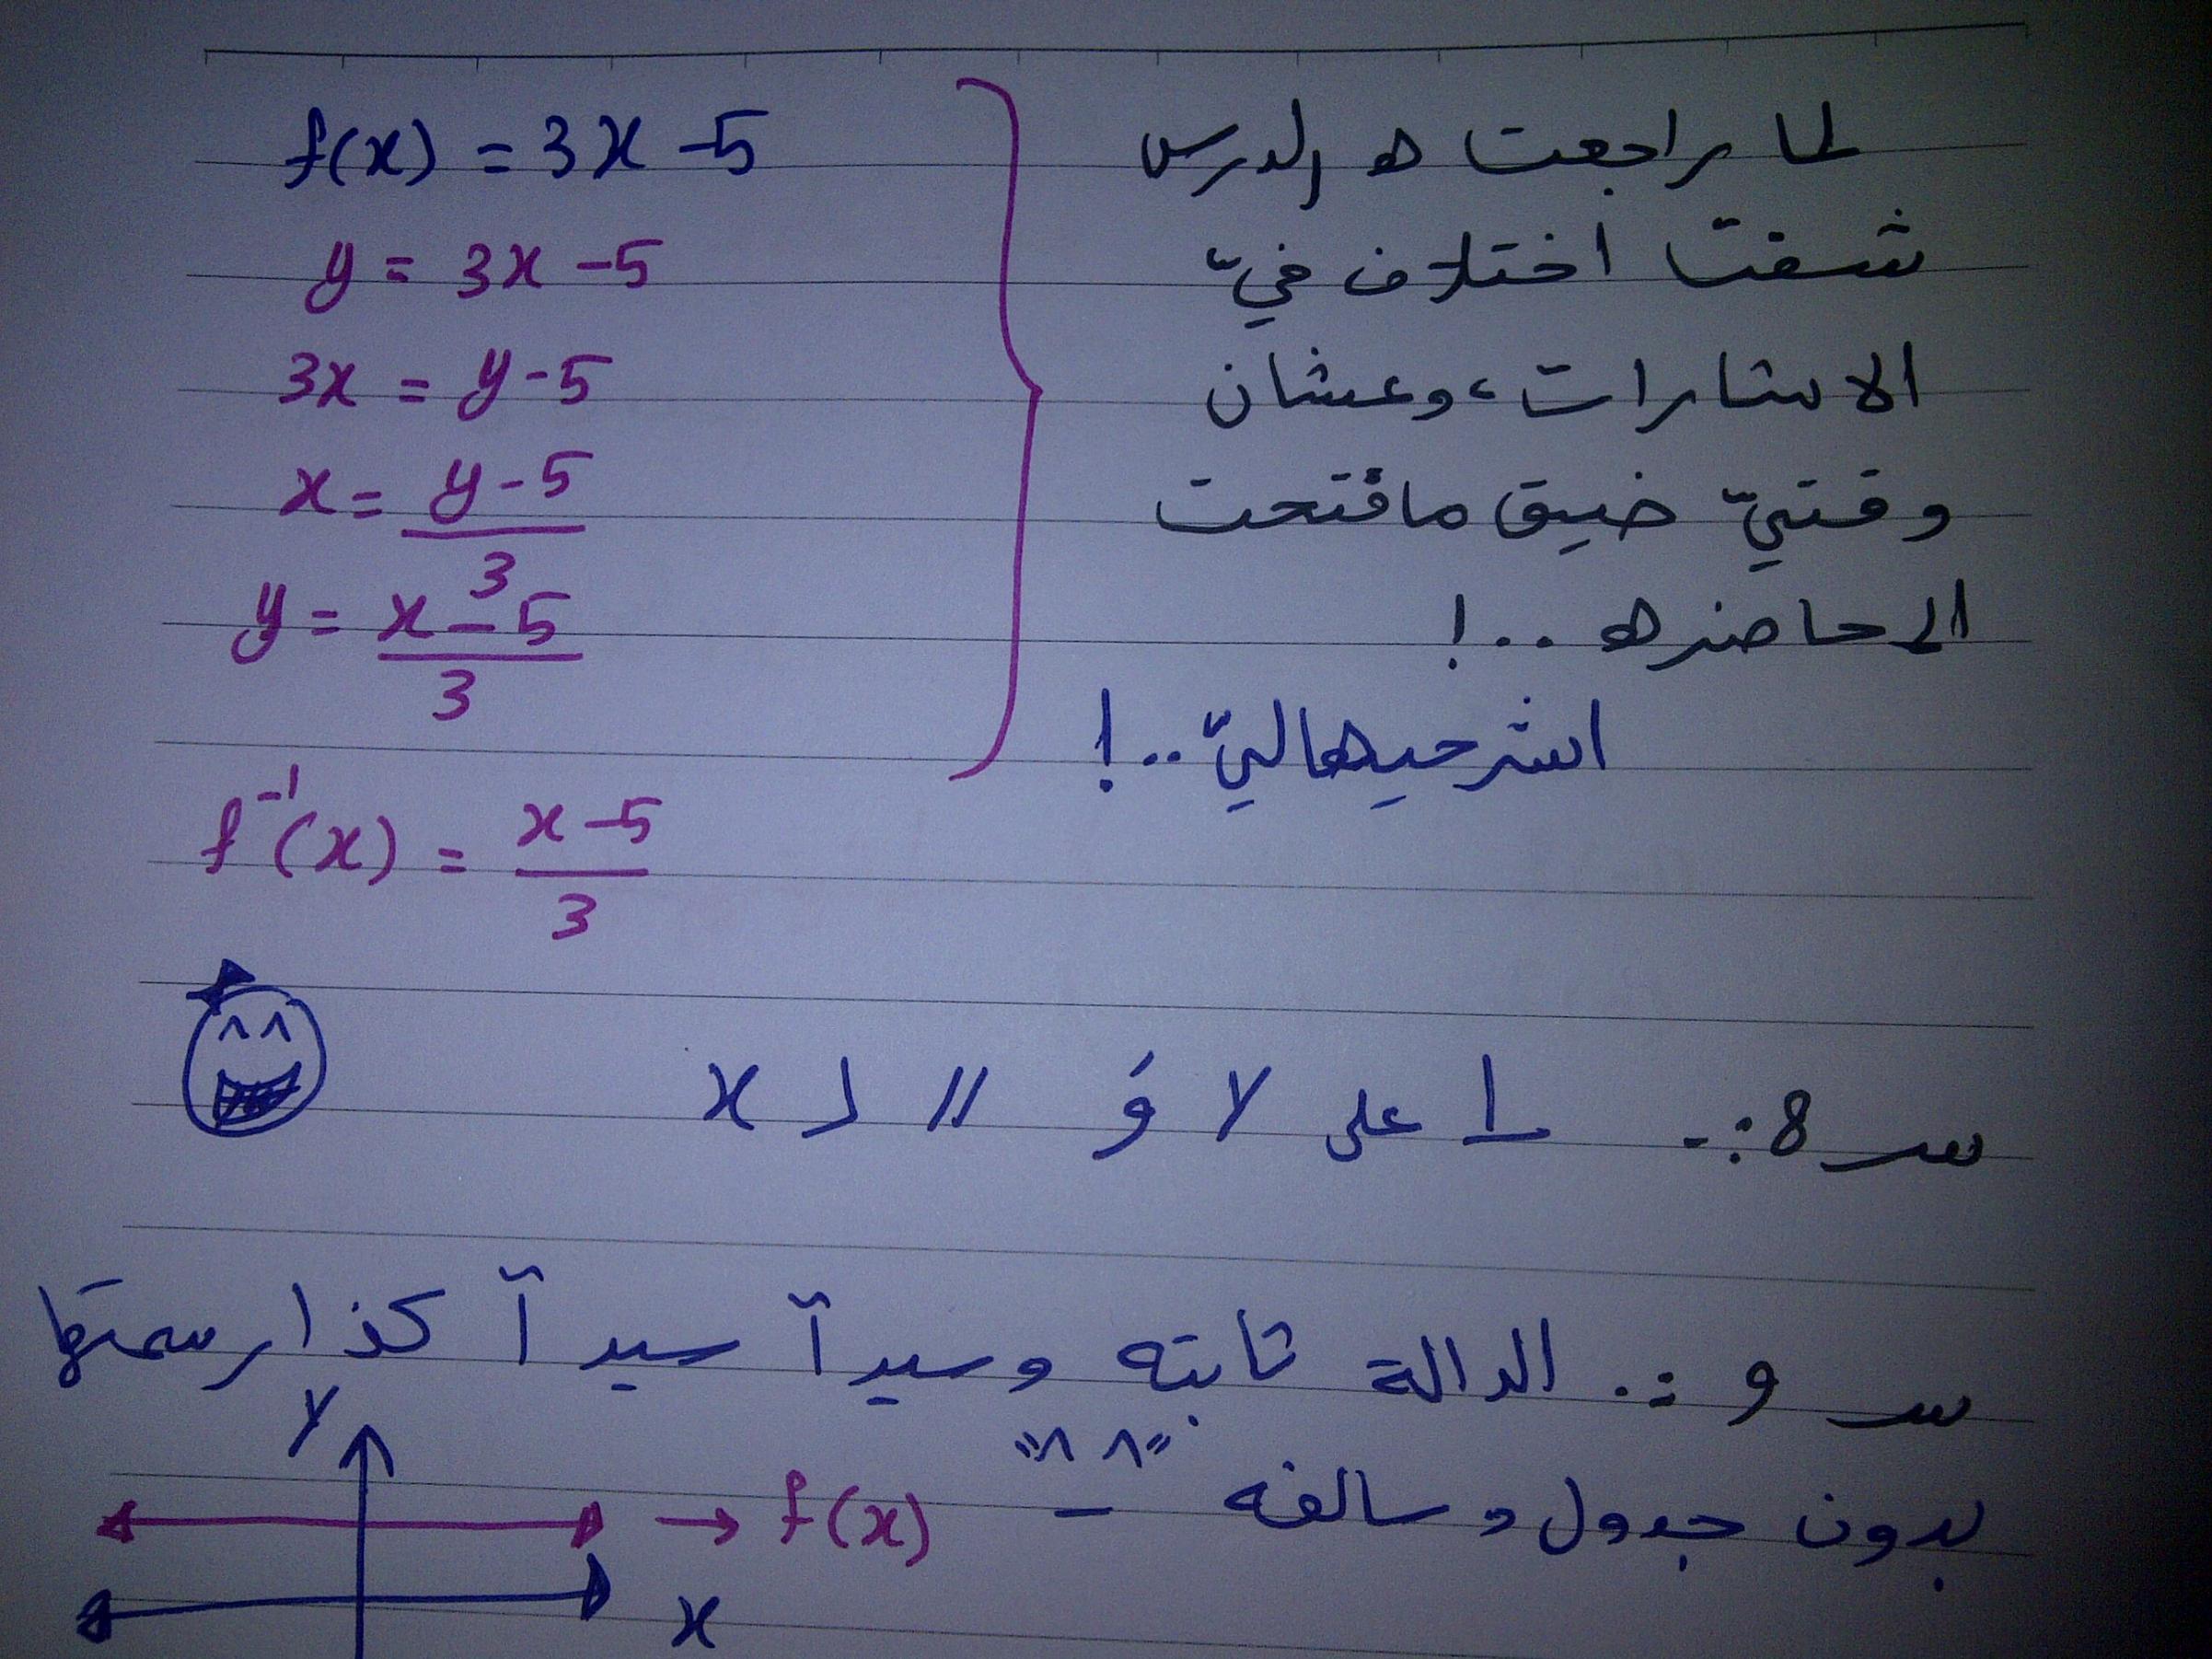 f(x) = 3x - 5
y = 3x - 5
3x = y - 5
x = y - 5 / 3
y = x - 5 / 3
f⁻¹(x) = x - 5 / 3
لما راجعت ه الدرس
شفت اختلاف فيّ
الاشارات، وعشان
وقتيّ ضيق مافتحت
المحاضره ..!
اشرحيهاليّ ..!
س 8 :- ⊥ على y وَ // لـ x
س 9 :. الدالة ثابته وسيدآ سيدآ كذا رسمتها
بدون جدول وسالفه " ^_^ "
y
→ f(x)
x